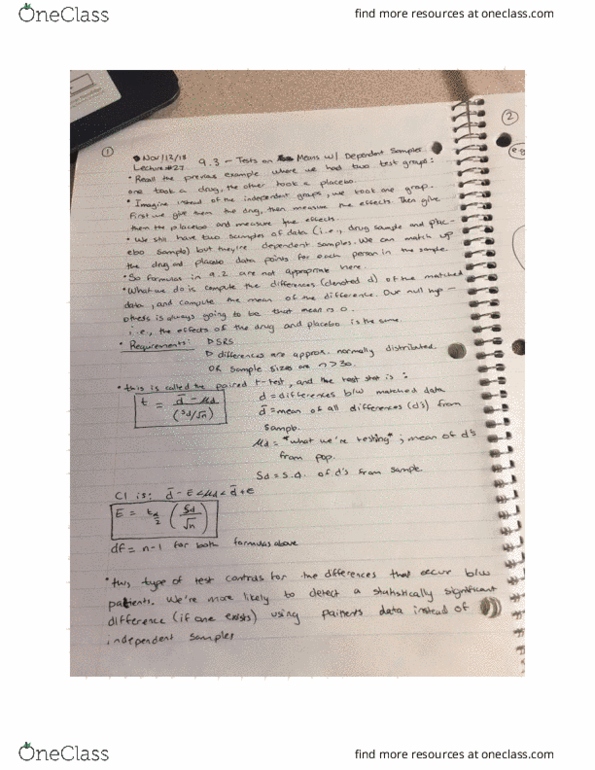 OneClass
find more resources at oneclass.com
2
1
Nov/13/18
Lecture #27
9.3 - Tests on Means w/ Dependent Samples
• Recall the previous example where we had two test groups:
one took a drug, the other took a placebo.
• Imagine instead of the independent groups, we took one group.
First we give them the drug, then measure the effects. Then give
them the placebo and measure the effects.
• We still have two samples of data (i.e., drug sample and plac-
ebo sample) but they're dependent samples. We can match up
the drug and placebo data points for each person in the sample.
• So formulas in 9.2 are not appropriate here.
• What we do is compute the differences (denoted d) of the matched
data, and compute the mean of the difference. Our null hyp-
othesis is always going to be that mean is 0.
i.e., the effects of the drug and placebo is the same.
• Requirements: ▷ SRS
▷ differences are approx. normally distributed.
OR sample sizes are n > 30.
• this is called the paired t-test, and the test stat is:
t = d̄ - μd / (sd/√n)
d = differences b/w matched data
d̄ = mean of all differences (d's) from
sample.
μd = "what we're testing"; mean of d's
from pop.
Sd = s.d. of d's from sample.
CI is: d̄ - E < μd < d̄ + E
E = tα/2 (Sd/√n)
df = n-1 for both formulas above
• this type of test controls for the differences that occur b/w
patients. We're more likely to detect a statistically significant
difference (if one exists) using data instead of
independent samples
OneClass
find more resources at oneclass.com